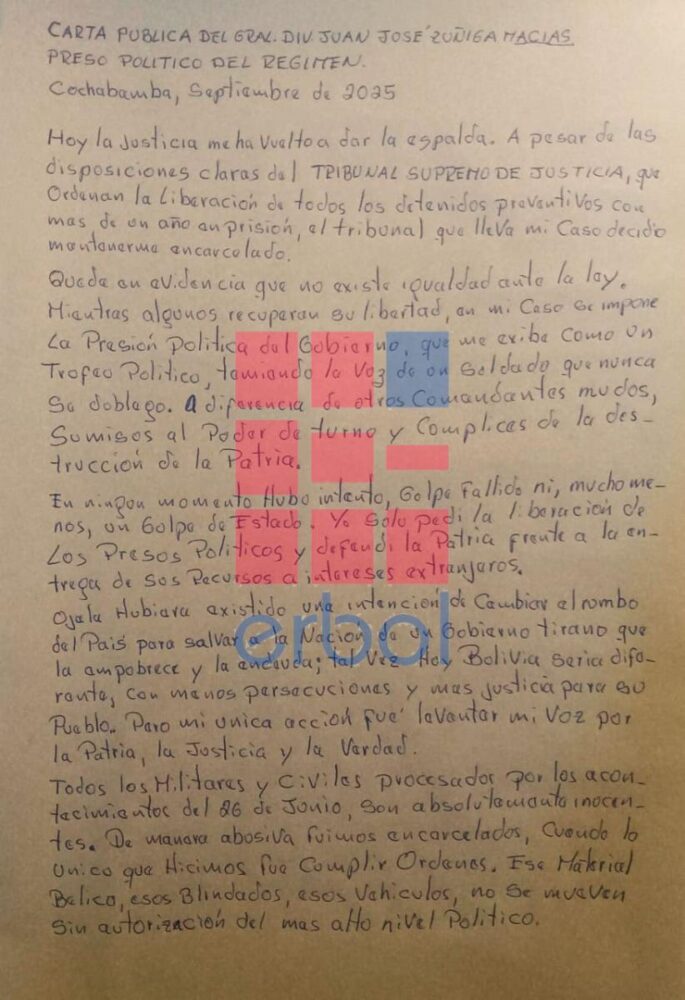 CARTA PUBLICA DEL GRAL. DIV. JUAN JOSÉ ZUÑIGA MACIAS.
PRESO POLITICO DEL REGIMEN.
Cochabamba, Septiembre de 2025
Hoy la Justicia me ha vuelto a dar la espalda. A pesar de las
disposiciones claras del TRIBUNAL SUPREMO DE JUSTICIA, que
Ordenan la Liberación de todos los detenidos preventivos con
mas de un año en prisión, el tribunal que lleva mi Caso decidio
mantenerme encarcelado.
Queda en evidencia que no existe igualdad ante la ley.
Mientras algunos recuperan su libertad, en mi Caso se impone
La Presión Politica del Gobierno, que me exibe como un
Trofeo Politico, temiendo la Voz de un Soldado que nunca
Se doblego. A diferencia de otros Comandantes mudos,
Sumisos al Poder de turno y Complices de la des-
trucción de la Patria.
En ningun momento Hubo intento, Golpe Fallido ni, mucho me-
nos, un Golpe de Estado. Yo Solo pedi la liberación de
Los Presos Politicos y defendi la Patria frente a la en-
trega de Sus Recursos a intereses extranjeros.
Ojala Hubiera existido una intención de Cambiar el rumbo
del País para salvar a la Nación de un Gobierno tirano que
la empobrece y la endeuda; tal Vez Hoy Bolivia Seria dife-
rente, Con menos persecuciones y mas justicia para su
Pueblo.. Pero mi unica acción fué levantar mi Voz por
la Patria, la Justicia y la Verdad.
Todos los Militares y Civiles procesador por los acon-
tecimientos del 26 de Junio, Son absolutamente inocen-
tes. De manera abusiva fuimos encarcelados, Cuando lo
Unico que Hicimos fue Cumplir Ordenes. Ese Material
Belico, esos Blindados, esos Vehiculos, no Se mueven
Sin autorización del mas alto nivel Politico.
erbol